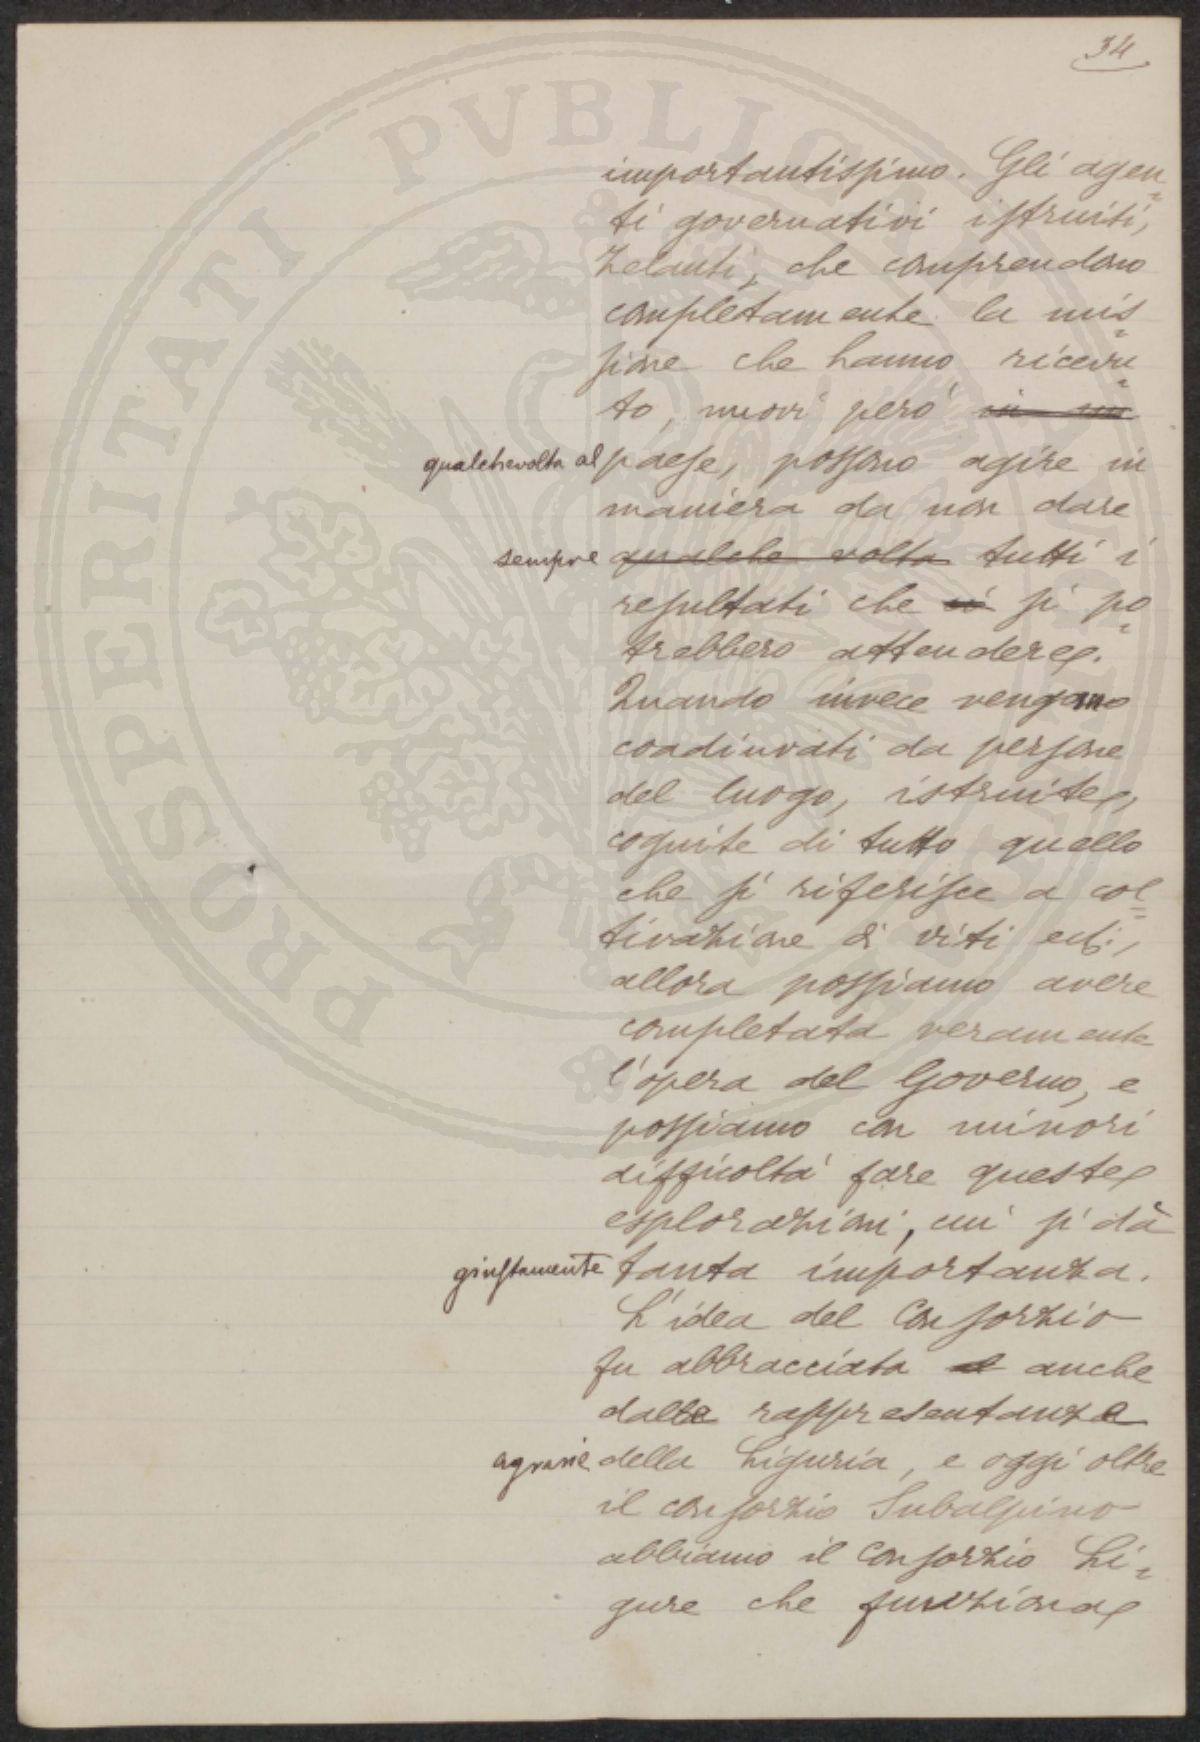 34
importantissimo. Gli agen=
ti governativi istruiti,
zelanti, che comprendono
completamente la mis=
sione che hanno ricevu=
to, nuovi però in un
qualchevolta al paese, possono agire in
maniera da non dare
sempre qualche volta tutti i
resultati che si si po=
trebbero attendere.
Quando invece vengano
coadiuvati da persone
del luogo, istruite,
cognite di tutto quello
che si riferisce a col=
tivazione di viti ect.,
allora possiamo avere
completata veramente
l'opera del Governo, e
possiamo con minori
difficoltà fare queste
esplorazioni, cui si dà
giustamente tanta importanza.
L'idea del Consorzio
fu abbracciata anche
dalle rappresentanze
agrarie della Liguria, e oggi oltre
il consorzio Subalpino
abbiamo il Consorzio Li=
gure che funziona
PROSPERITATI PVBLICAE